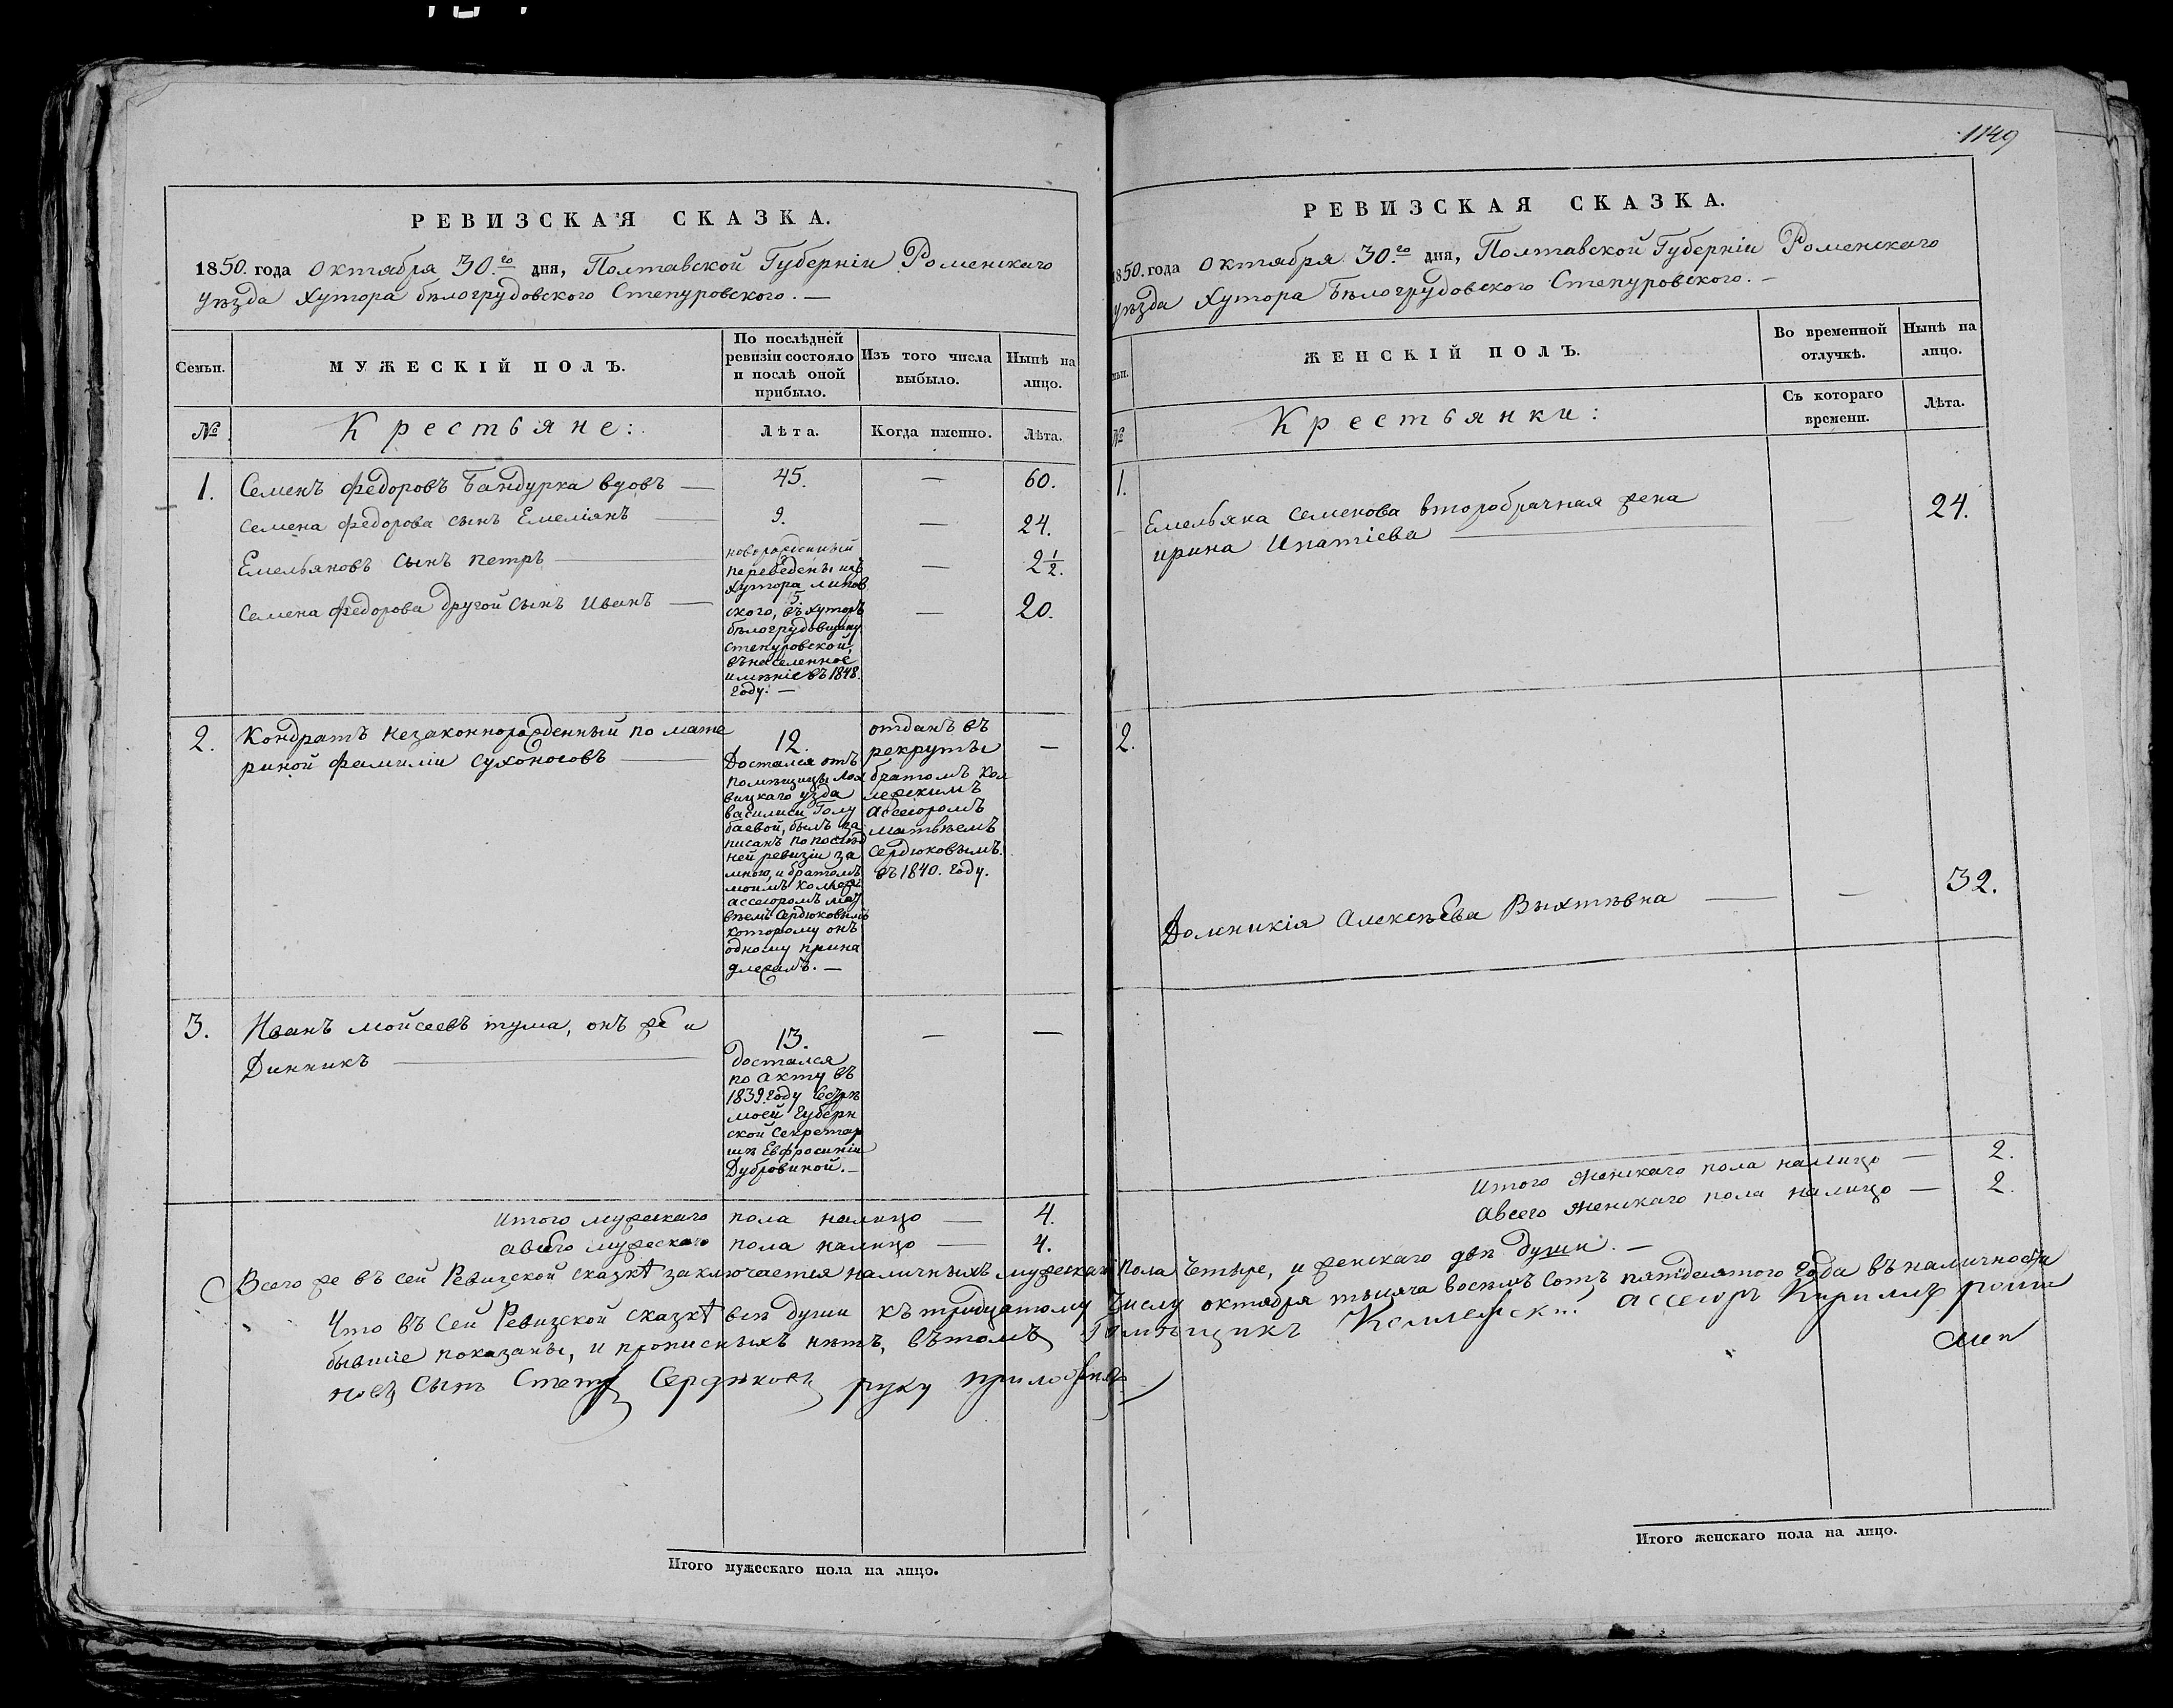 1149
РЕВИЗСКАЯ СКАЗКА.
1850. года Октября 30.го дня, Полтавской Губерніи Роменскаго
уѣзда Хутора бѣлогрудовского Степуровского. —
Семьи.
МУЖЕСКІЙ ПОЛЪ.
По послѣдней
ревизіи состояло
и послѣ оной
прибыло.
Изъ того числа
выбыло.
Нынѣ на
лицо.
№
Крестьяне:
Лѣта.
Когда именно.
Лѣта.
1. Семенъ Федоровъ Бандурка вдовъ — 45. — 60.
Семена Федорова сынъ Емеліянъ — 9. — 24.
Емельяновъ Сынъ Петръ — новорожденный — 2 1/2.
Семена Федорова другой Сынъ Иванъ — 5. — 20.
переведены изъ
Хутора липов
ского, въ хуторъ
бѣлогрудовщину
Степуровской,
въ населенное
имѣніе въ 1848.
году. —
2. Кондратъ незаконнорожденный по мате
риной фамиліи Сухоносовъ —
12.
Достался отъ
помѣщицы Лох
вицкаго уѣзда
василиси Голу
баевой, былъ за
писанъ по послѣд
ней ревизіи за
мною, и братомъ
моимъ
ассесоромъ мат
вѣемъ Сердюковымъ
которому онъ
одному прина
длежалъ. —
отданъ въ
рекруты
братомъ кол
лежскимъ
Ассесоромъ
матвѣемъ
Сердюковымъ.
въ 1840. году.
—
3. Иванъ Мойсеевъ тума, онъ же и
Динникъ —
13.
достался
по акту въ
1839. году
моей Губерн
ской Секретар
шѣ Евфросиніи
Дубровиной. —
—
—
Итого мужескаго пола налицо — 4.
А всего мужескаго пола налицо — 4.
РЕВИЗСКАЯ СКАЗКА.
1850. года Октября 30.го дня, Полтавской Губерніи Роменскаго
уѣзда Хутора Бѣлогрудовского Степуровского. —
ЖЕНСКІЙ ПОЛЪ.
Во временной
отлучкѣ.
Нынѣ на
лицо.
№
Крестьянки:
Съ котораго
времени.
Лѣта.
1.
Емельяна Семенова второбрачная жена
ирина Ипатіева — 24.
2.
Домникія Алексѣева Выхтѣвна — — 32.
Итого женскаго пола налицо — 2.
А всего женскаго пола налицо — 2.
Всего же въ сей Ревизской сказкѣ заключается наличныхъ мужескаго пола четыре, и женскаго двѣ души. —
Что въ сей Ревизской сказкѣ всѣ души къ тридцатому числу октября тысяча восемь сотъ пятдесятого года въ наличности
бывшіе показаны, и прописныхъ нѣтъ, въ томъ Помѣщикъ Коллежскій ассесоръ
Сердюковъ руку приложилъ
Итого мужескаго пола на лицо.
Итого женскаго пола на лицо.